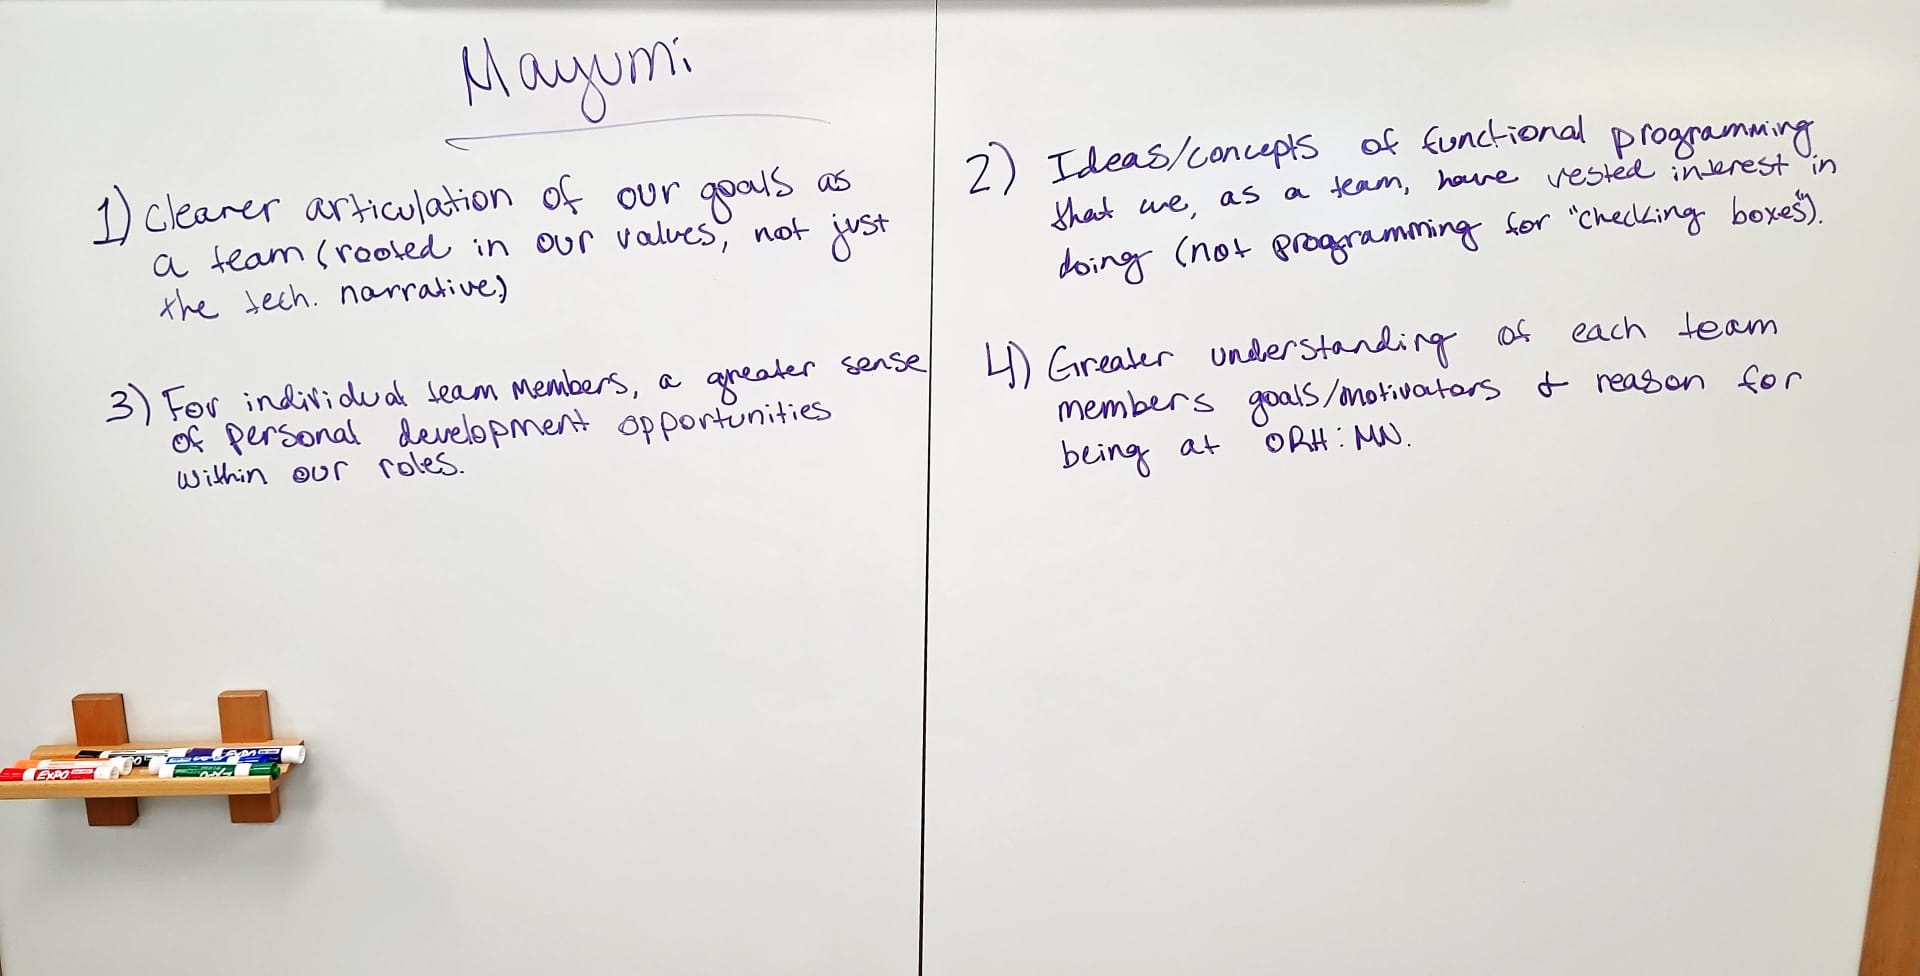 Mayumi
1) Clearer articulation of our goals as
a team (rooted in our values, not just
the tech. narrative)
2) Ideas/concepts of functional programming
that we, as a team, have vested interest in
doing (not programming for "checking boxes").
3) For individual team members, a greater sense
of personal development opportunities
within our roles.
4) Greater understanding of each team
members goals/motivators & reason for
being at ORH:MN.
EXPO
EXPO